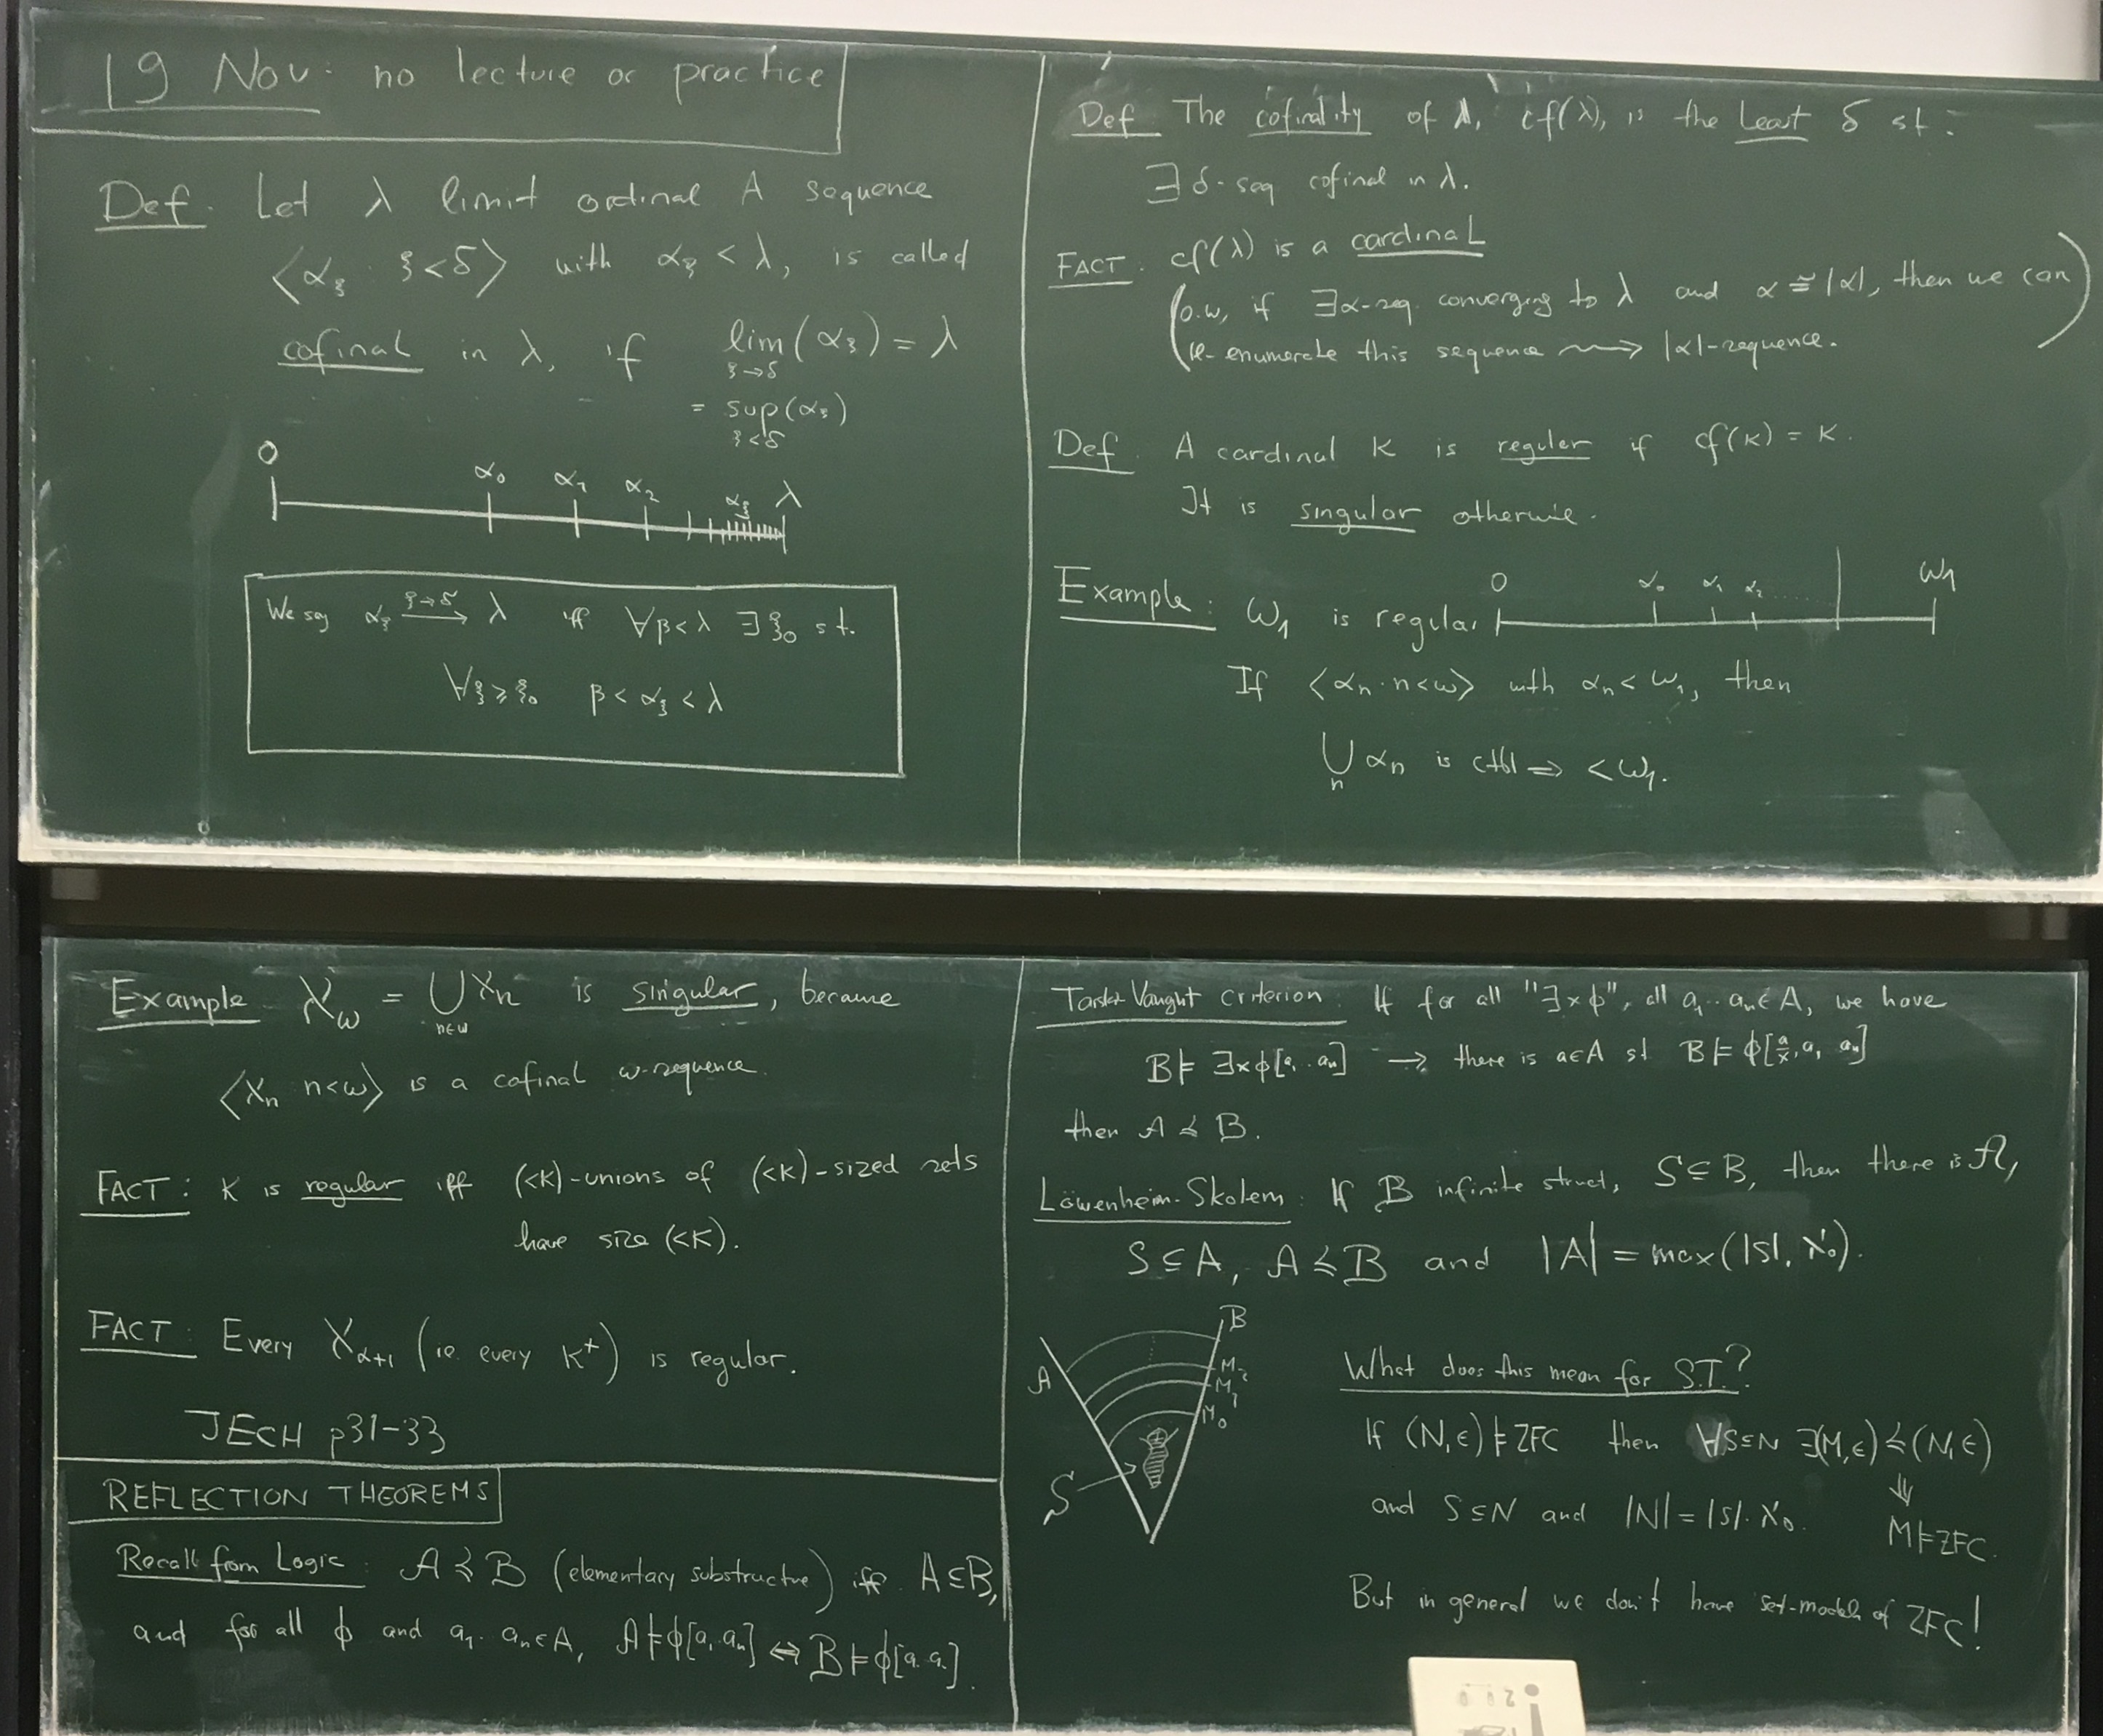 19 Nov: no lecture or practice
Def. Let λ limit ordinal A sequence
⟨α_ξ : ξ<δ⟩ with α_ξ < λ, is called
cofinal in λ, if lim_{ξ→δ} (α_ξ) = λ
= sup_{ξ<δ} (α_ξ)
0 α_0 α_1 α_2 α_ξ λ
We say α_ξ →^{ξ→δ} λ iff ∀β<λ ∃ξ_0 s.t.
∀ξ≥ξ_0 β < α_ξ < λ
Def The cofinality of λ, cf(λ), is the Least δ st:
∃δ-seq cofinal in λ.
FACT. cf(λ) is a cardinaL
(o.w, if ∃α-seq. converging to λ and α ≅ |α|, then we can
re-enumerate this sequence ⇝ |α|-sequence.)
Def. A cardinal κ is reguler if cf(κ) = κ.
It is singular otherwise.
Example: ω_1 is regular
0 α_0 α_1 α_2 ..... ω_1
If ⟨α_n : n<ω⟩ with α_n < ω_1, then
⋃_n α_n is ctbl ⇒ < ω_1.
Example ℵ_ω = ⋃_{n∈ω} ℵ_n is singular, because
⟨ℵ_n n<ω⟩ is a cofinal ω-sequence.
FACT: κ is regular iff (<κ)-unions of (<κ)-sized sets
have size (<κ).
FACT: Every ℵ_{α+1} (ie. every κ⁺) is regular.
JECH p31-33
REFLECTION THEOREMS
Recall from Logic: A ≼ B (elementary substructure) iff A⊆B,
and for all ϕ and a_1..a_n∈A, A⊨ϕ[a_1..a_n] ⇔ B⊨ϕ[a..a.].
Tarski Vaught criterion: If for all "∃xϕ", all a_1..a_n∈A, we have
B⊨ ∃xϕ[a_1..a_n] → there is a∈A st B⊨ϕ[a/x, a_1 a_n]
then A ≼ B.
Löwenheim-Skolem: If B infinite struct, S⊆B, then there is A,
S⊆A, A≼B and |A| = max(|S|, ℵ_0).
B
A M_2
M_1
M_0
S
What does this mean for S.T.?
If (N,∈)⊨ZFC then ∀S⊆N ∃(M,∈)≼(N,∈)
⇓
and S⊆N and |N| = |S|·ℵ_0. M⊨ZFC.
But in general we don't have set-models of ZFC!